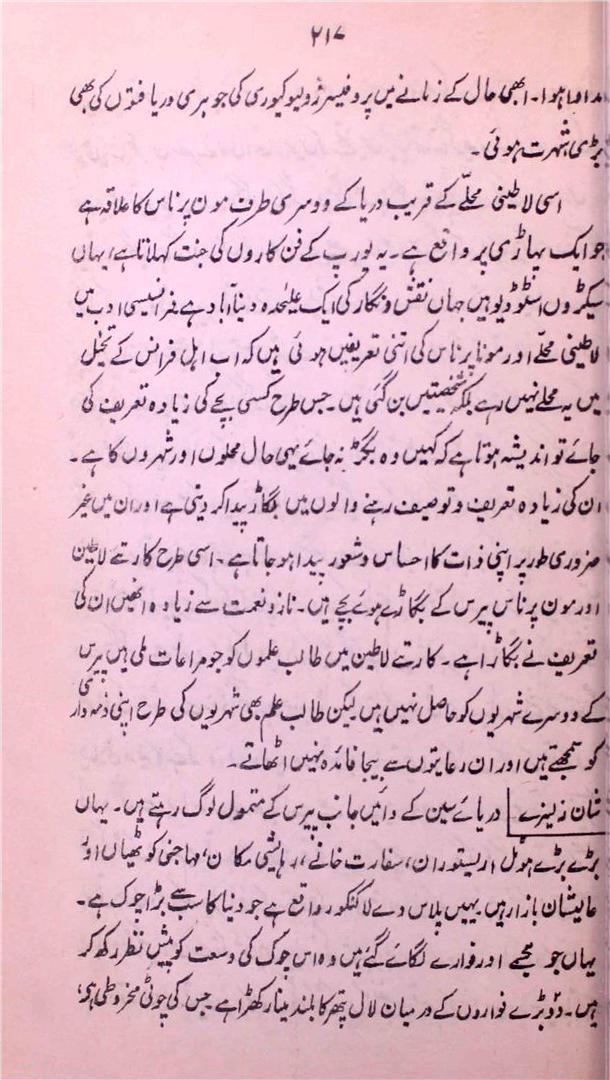 ۲۱۷
ہوا۔ ابھی حال کے زمانے میں پروفیسر ژولیو کیوری کی جوہری دریافتوں کی بھی
بڑی شہرت ہوئی۔
اسی لاطینی محلّے کے قریب دریا کے دوسری طرف مون پرناس کا علاقہ ہے
جو ایک پہاڑی پر واقع ہے۔ یہ یورپ کے فن کاروں کی جنت کہلاتا ہے، یہاں
سیکڑوں اسٹوڈیو ہیں جہاں نقش و نگار کی ایک علیٰحدہ دنیا آباد ہے۔ فرانسیسی ادب میں
لاطینی محلّے اور مونا پرناس کی اتنی تعریفیں ہوئی ہیں کہ اب اہل فرانس کے تخیّل
میں یہ محلے نہیں رہے بلکہ شخصیتیں بن گئی ہیں۔ جس طرح کسی بچے کی زیادہ تعریف کی
جائے تو اندیشہ ہوتا ہے کہ کہیں وہ بگڑ نہ جائے یہی حال محلوں اور شہروں کا ہے۔
ان کی زیادہ تعریف و توصیف رہنے والوں میں بگاڑ پیدا کر دیتی ہے اور ان میں غیر
ضروری طور پر اپنی ذات کا احساس و شعور پیدا ہو جاتا ہے۔ اسی طرح کارتے لاطین
اور مون پرناس پیرس کے بگاڑے ہوئے بچے ہیں۔ ناز و نعمت سے زیادہ انھیں ان کی
تعریف نے بگاڑا ہے۔ کارتے لاطین میں طالب علموں کو جو مراعات ملی ہیں پیرس
کے دوسرے شہریوں کو حاصل نہیں ہیں لیکن طالب علم بھی شہریوں کی طرح اپنی ذمہ داری
کو سمجھتے ہیں اور ان رعایتوں سے بیجا فائدہ نہیں اٹھاتے۔
شان زلیزے دریائے سین کے دائیں جانب پیرس کے متمول لوگ رہتے ہیں۔ یہاں
بڑے بڑے ہوٹل اریستوران، سفارت خانے، رہائشی مکان، مہاجنی کوٹھیاں اور
عالیشان بازار ہیں۔ یہیں پلاس دے لاکنکورد واقع ہے جو دنیا کا سب سے بڑا چوک ہے۔
یہاں جو مجسمے اور فوارے لگائے گئے ہیں وہ اس چوک کی وسعت کو پیش نظر رکھ کر
ہیں۔ دو بڑے فواروں کے درمیان لال پتھر کا بلند مینار کھڑا ہے جس کی چوٹی مخروطی ہے،